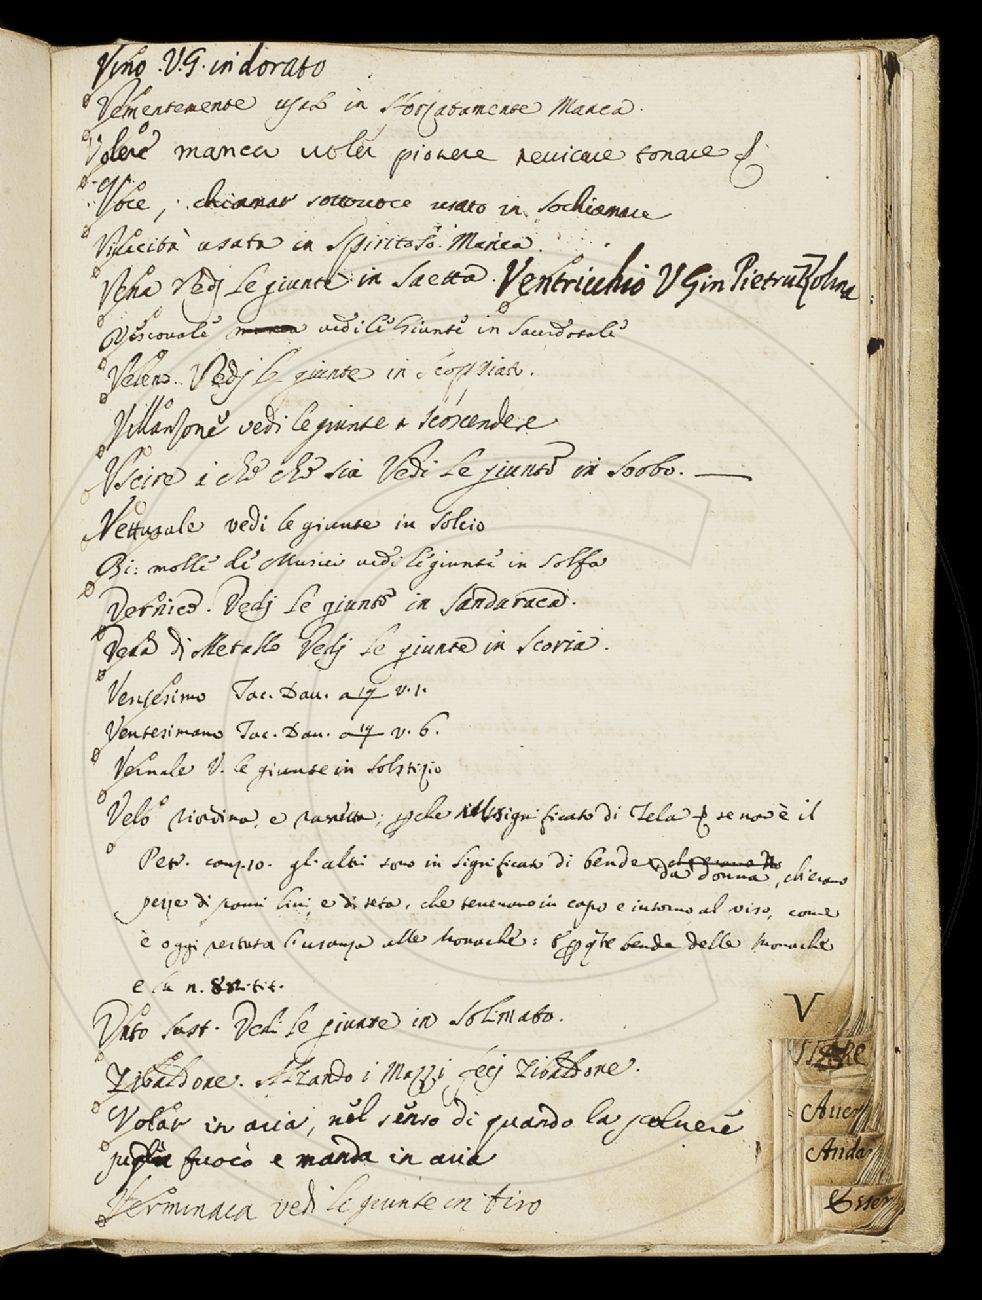 Vino. V.G. in dorato
Vementemente usasi in sforzatamente Manca.
Volere manca voler piovere nevicare tonare
Voce, chiamar sottovoce usato in sochiamare
Vivacità usata in Spiritoso. Manca.
Vena Vedj le giunte in Saetta. Ventricchio V G in Pietruzzolina
Vescovale manca vedi le Giunte in Sacerdotale
Veleno. Vedj le giunte in Scoppiar.
Villanzone vedi le giunte a scoscendere
Uscire a chè chè sia Vedi le giunte in Sobbo.
Vetturale vedi le giunte in Solcio
Bi: molle de Musici vedi le giunte in solfa
Vernice. Vedj le giunte in Sandaraca.
Vena di Metallo Vedj le giunte in Scoria.
Ventesimo Tac. Dav. a 17 v. 1.
Ventesimano Tac. Dav. a 17 v. 6.
Vernale V. le giunte in Solstizio
Velo riordina, e; significato di Tela se non è il
Petr. canz. 10. gl'altri sono in significato di bende da donna, ch'erano
pezze di panni lini, e di seta, che tenevano in capo e intorno al viso, come
è oggi restata l'usanza alle Monache: bende delle Monache
e la n.
Unto Sust. Vedi le giunte in Solimato.
Zibaldone. Alzando i Mazzi fecj Zibaldone.
Volar in aria, nel senso di quando la polvere
piglia fuoco e manda in aria
Verminaca vedi le giunte in tiro
V
Auer
Anda
Esser